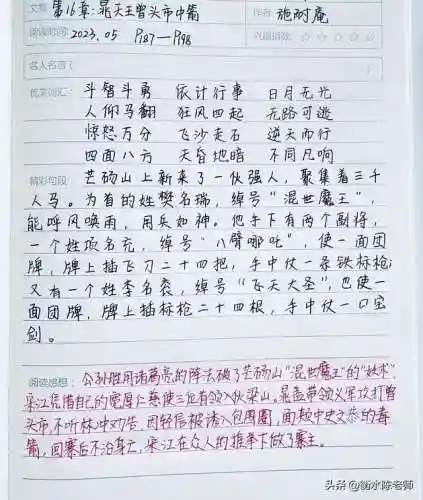 文章：第16章：晁天王曾头市中箭 作者：施耐庵
阅读时间：2023.05 P187—P198 兴趣指数：☆ ☆ ☆ ☆ ☆
名人名言（ ）
优美词汇：斗智斗勇 依计行事 日月无光
人仰马翻 狂风四起 无路可逃
惊怒万分 飞沙走石 逆天而行
四面八方 天昏地暗 不同凡响
精彩句段：芒砀山上新来了一伙强人，聚集着三千
人马。为首的姓樊名瑞，绰号“混世魔王”，
能呼风唤雨，用兵如神。他手下有两个副将，
一个姓项名充，绰号“八臂哪吒”，使一面团
牌，牌上插飞刀二十四把，手中仗一条铁标枪；
又有一个姓李名衮，绰号“飞天大圣”，也使一
面团牌，牌上插标枪二十四根，手中仗一口宝
剑。
阅读感想：公孙胜用诸葛亮的阵法破了芒砀山“混世魔王”的“妖术”，
宋江凭借自己的宽厚仁慈使三位有领入伙梁山。晁盖带领义军攻打曾
头市，不听林冲劝告，因轻信被诱入包围圈，面颊中史文恭的毒
箭，回寨后不治身亡，宋江在众人的推举下做了寨主。
头条@衡水陈老师